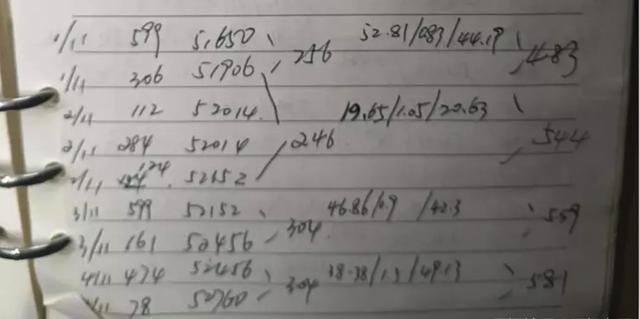 1/11 599 51650 256 52.81/083/44.19 483
1/11 306 51906
2/11 112 52014 19.65/1.05/20.63
2/11 284 52014 246 544
2/11 124 52152
3/11 599 52152 46.86/09 /42.3 559
3/11 161 50456 304
4/11 474 52456 38.38/1.3/49.13 581
78 50760 304